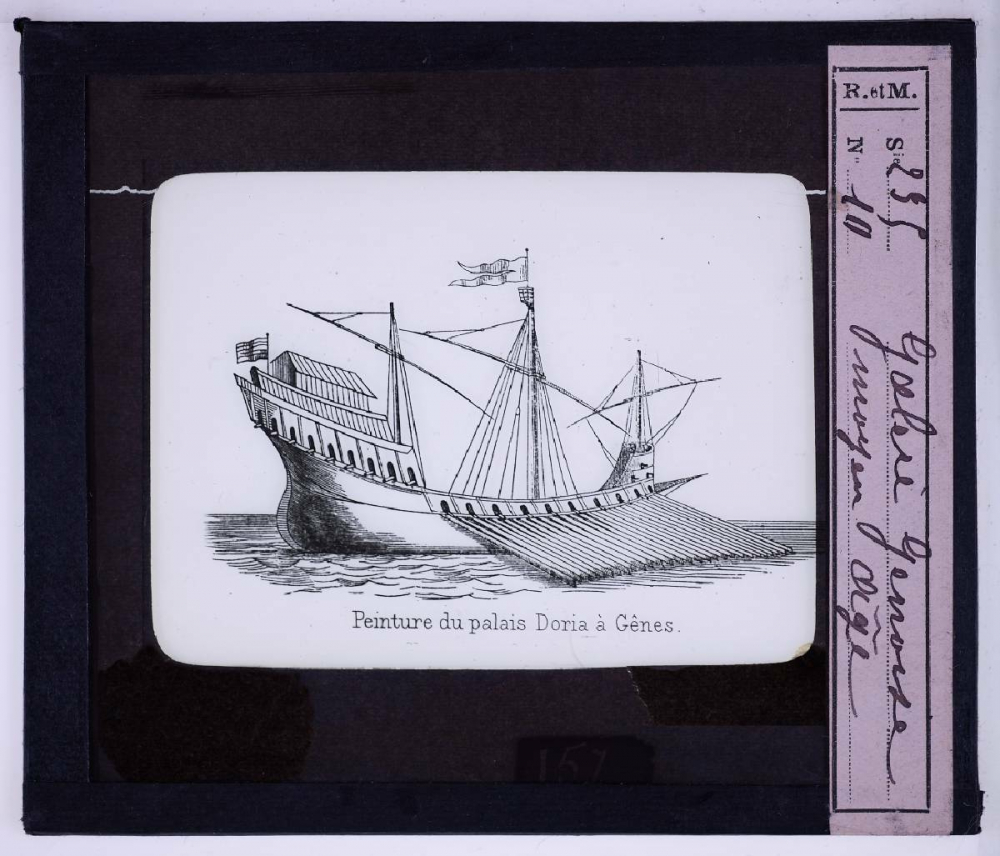 Peinture du palais Doria à Gênes.
R. et M.
Sie 255
N° 10
Galère Génoise
moyen âge
157